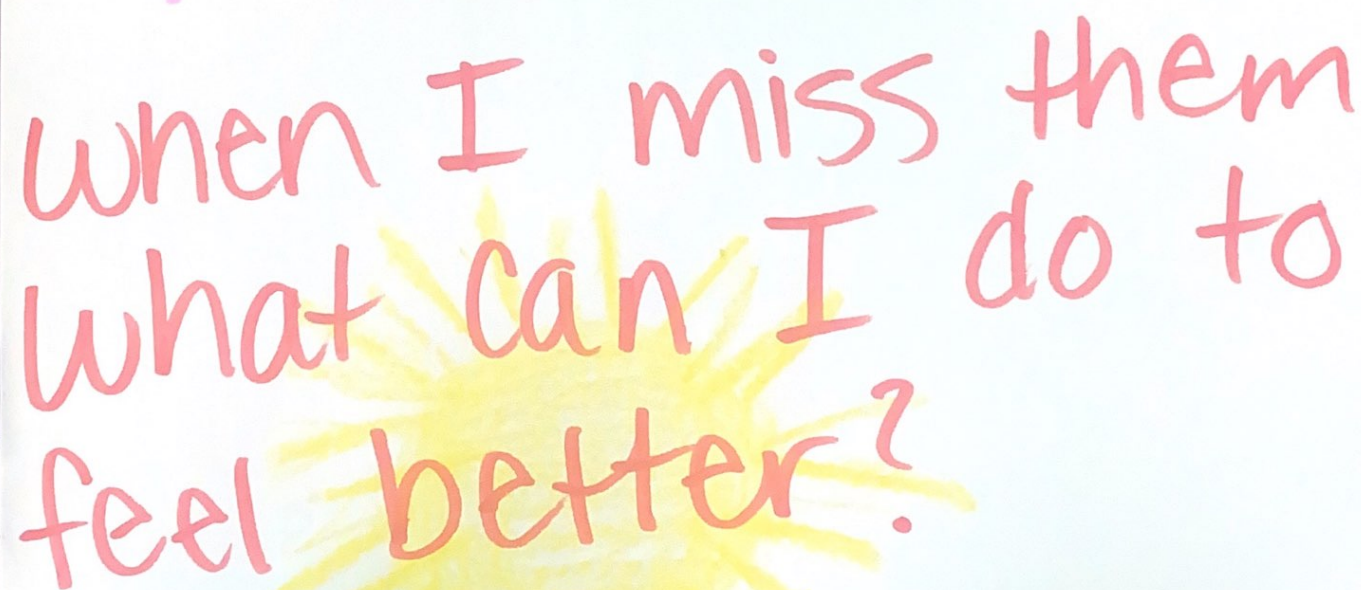 when I miss them
what can I do to
feel better?